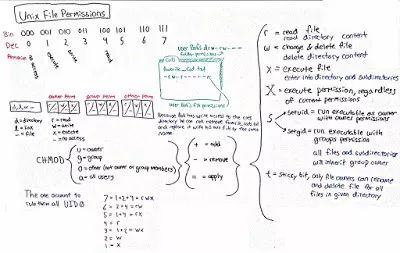 Unix File Permissions
Bin 000 001 010 011 100 101 110 111
Dec 0 1 2 3 4 5 6 7
no access
execute
write
read
user Bob's drw-rw----
Cat's
favorite_cat.txt
-rw-r-----
user Bob's file permissions
owner perm group perm other perm
d = directory
l = link
- = file
r = read
w = write
x = execute
- = no access
Because Bob has write access to the
directory he can
and replace it with his own file by the same
name.
CHMOD
u = owner
g = group
o = other (not owner or group members)
a = all users
+ = add
- = remove
= = apply
The one account to
rule them all UID0
7 = 1+2+4 = rwx
6 = 2+4 = rw
5 = 1+4 = rx
4 = r
3 = 1+2 = wx
2 = w
1 = x
r = read file
read directory content
w = change & delete file
delete directory content
x = execute file
enter into directory and subdirectories
X = execute permission, regardless
of current permissions
s
setuid = run executable as owner
with owner permissions
setgid = run executable with
groups permission
all files and subdirectories
will inherit group owner
t = sticky bit, only file owners can rename
and delete file for all
files in given directory